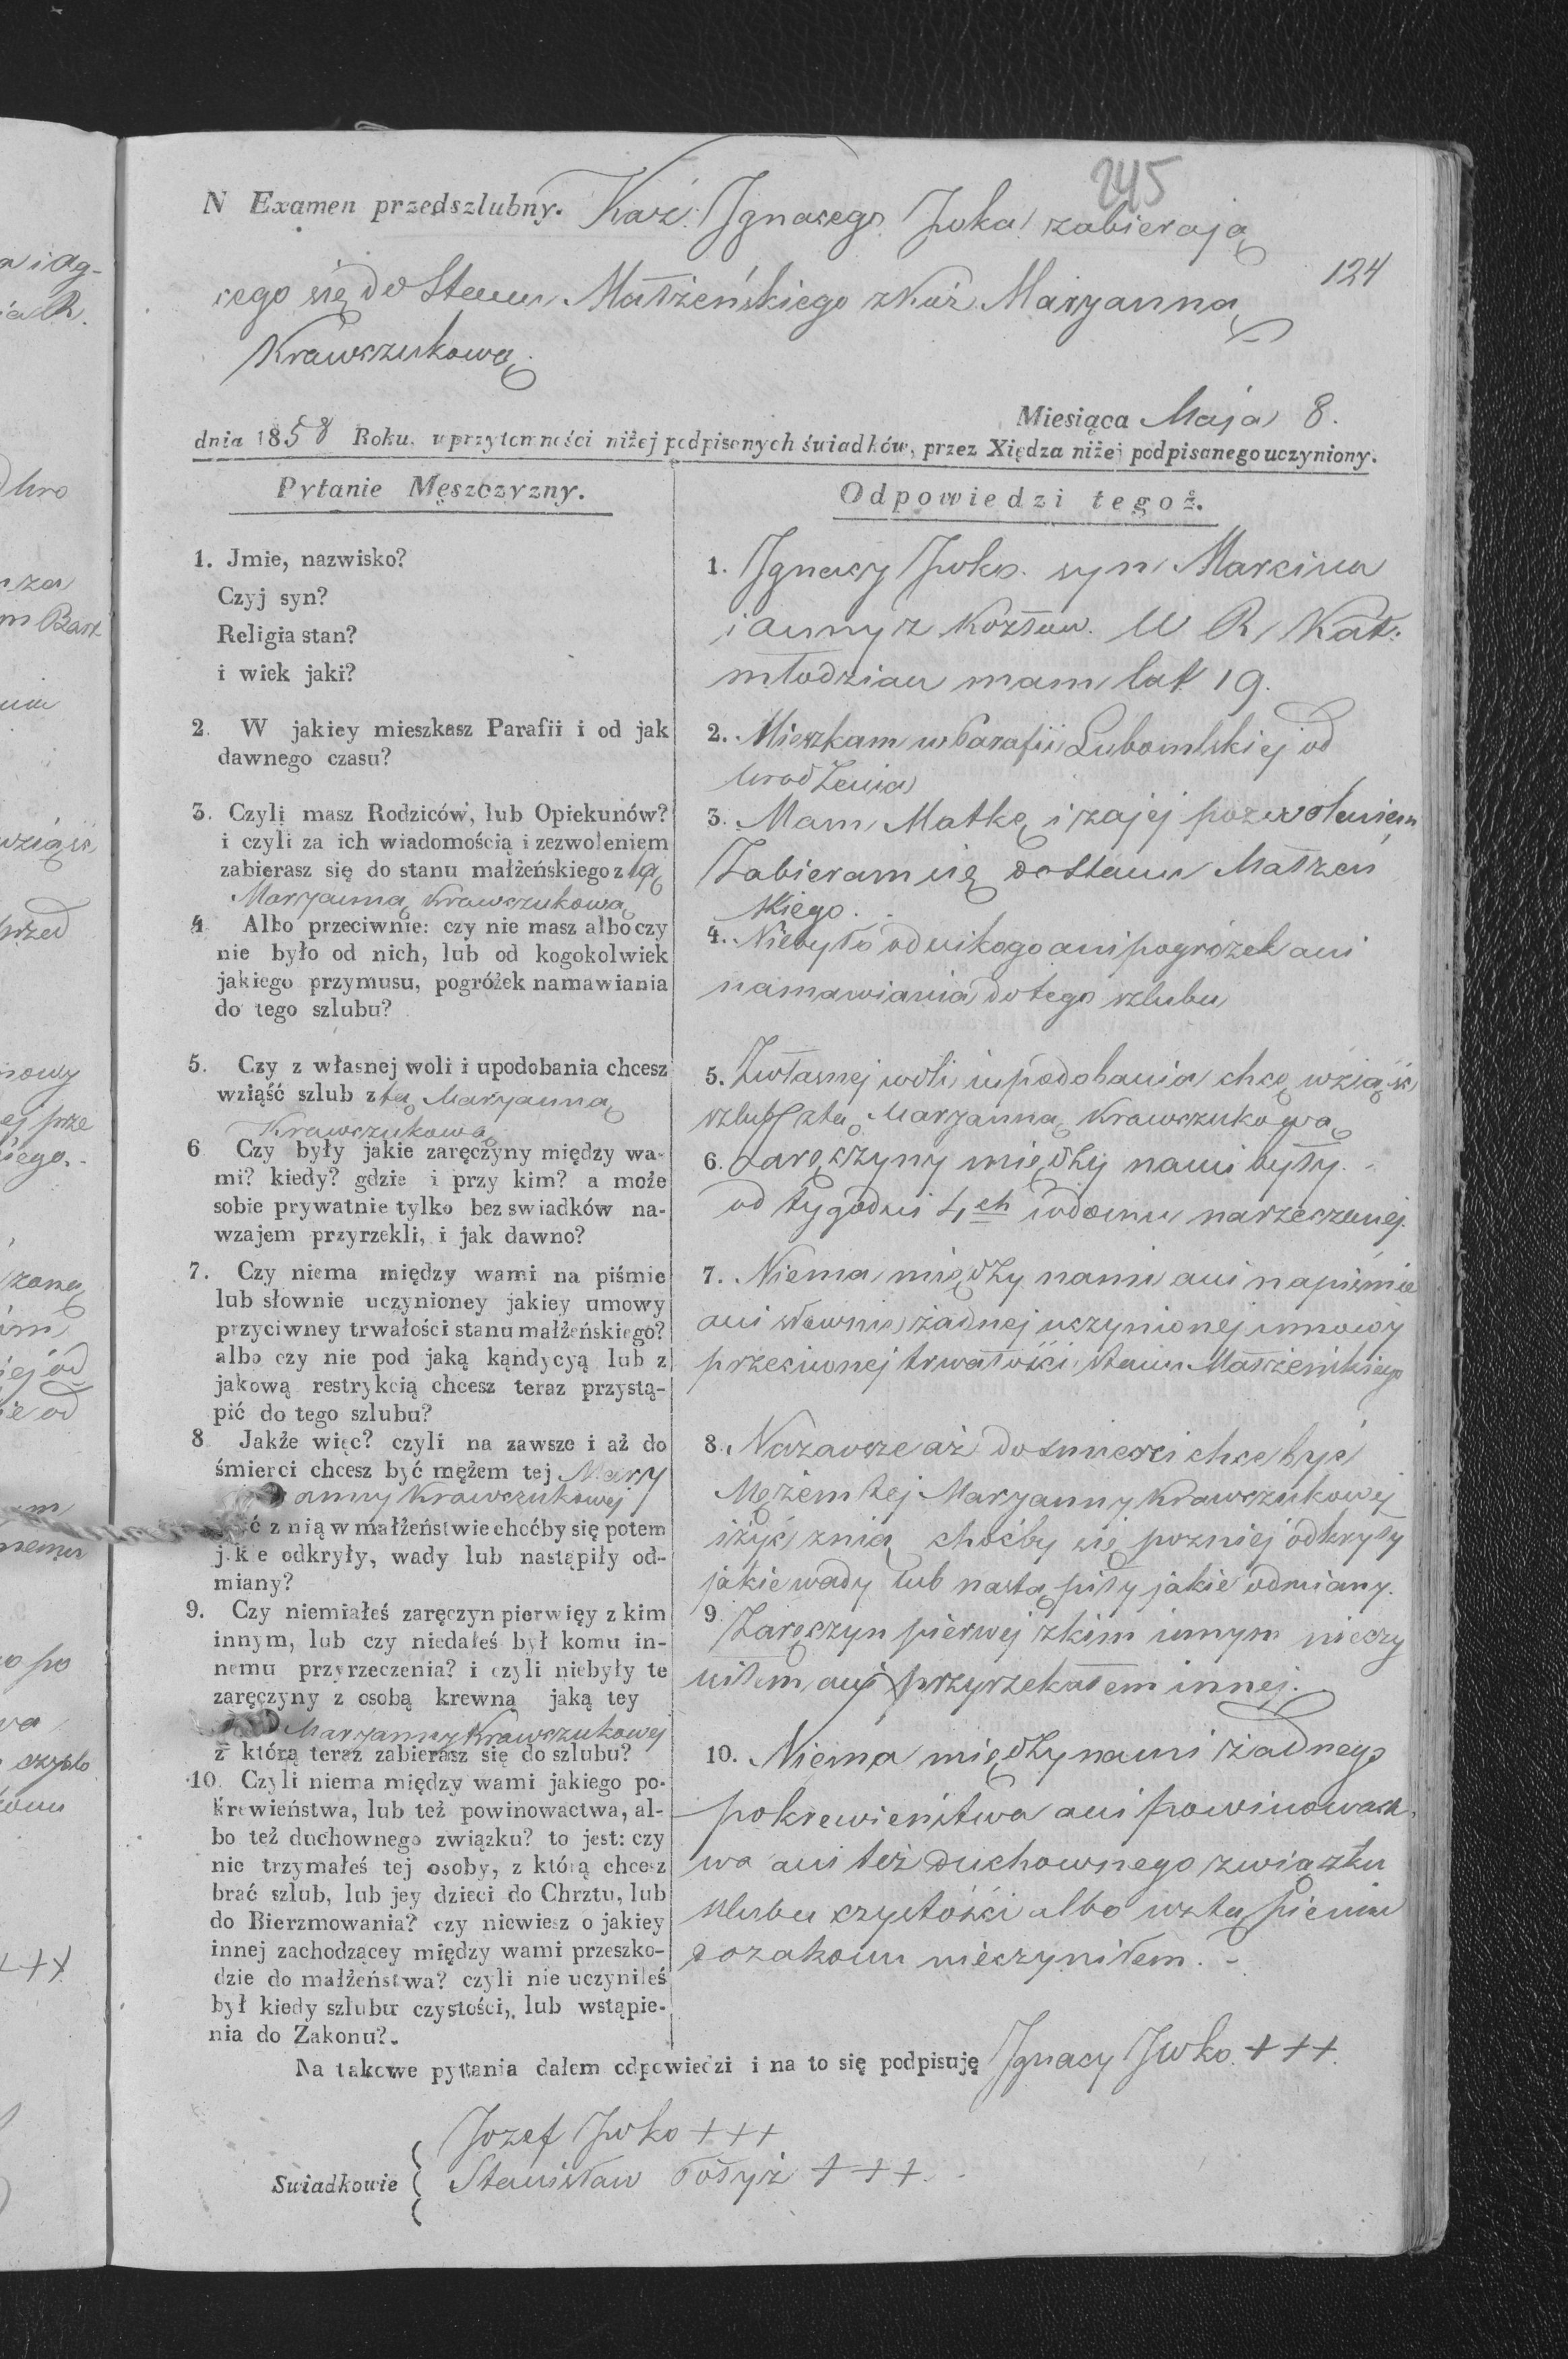 245
N Examen przedszlubny. Kaź: Ignacego Iwka zabierają
124
cego się do Stanu Małżeńskiego z Kaź. Maryanną
Krawczukową.
Miesiąca Maja 8.
dnia 1858 Roku, w przytomności niżej podpisanych świadków, przez Xiędza niżej podpisanego uczyniony.
Pytanie Męszczyzny.
1. Jmie, nazwisko?
Czyj syn?
Religia stan?
i wiek jaki?
2. W jakiey mieszkasz Parafii i od jak
dawnego czasu?
3. Czyli masz Rodziców, lub Opiekunów?
i czyli za ich wiadomością i zezwoleniem
zabierasz się do stanu małżeńskiego z tą
Maryanną Krawczukową
4 Albo przeciwnie: czy nie masz albo czy
nie było od nich, lub od kogokolwiek
jakiego przymusu, pogróżek namawiania
do tego szlubu?
5. Czy z własnej woli i upodobania chcesz
wziąść szlub z tą Maryanną
Krawczukową
6 Czy były jakie zaręczyny między wa-
mi? kiedy? gdzie i przy kim? a może
sobie prywatnie tylko bez swiadków na-
wzajem przyrzekli, i jak dawno?
7. Czy niema między wami na piśmie
lub słownie uczynioney jakiey umowy
przyciwney trwałości stanu małżeńskiego?
albo czy nie pod jaką kąndycyą lub z
jakową restrykcią chcesz teraz przystą-
pić do tego szlubu?
8 Jakże więc? czyli na zawsze i aż do
śmierci chcesz być mężem tej Mary
anny Krawczukowej
ć z nią w małżeństwie choćby się potem
jakie odkryły, wady lub nastąpiły od-
miany?
9. Czy niemiałeś zaręczyn pierwięy z kim
innym, lub czy niedałeś był komu in-
nemu przyrzeczenia? i czyli niebyły te
zaręczyny z osobą krewną jaką tey
Maryanny Krawczukowej
z którą teraz zabierasz się do szlubu?
10. Czyli niema między wami jakiego po-
krewieństwa, lub też powinowactwa, al-
bo też duchownego związku? to jest: czy
nie trzymałeś tej osoby, z którą chcesz
brać szlub, lub jey dzieci do Chrztu, lub
do Bierzmowania? czy niewiesz o jakiey
innej zachodzącey między wami przeszko-
dzie do małżeństwa? czyli nie uczyniłeś
był kiedy szlubu czystości, lub wstąpie-
nia do Zakonu?
Odpowiedzi tegoż.
1. Ignacy Iwko. syn Marcina
i Anny z Kozłow. W R Kat.
młodzian mam lat 19.
2. Mieszkam w Parafii Lubomlskiej od
urodzenia
3. Mam Matkę i za jej pozwoleniem
Zabieram się do Stanu Małżeń
skiego.
4. Niebyło od nikogo ani pogróżek ani
namawiania do tego szlubu
5. Z własnej woli i upodobania chcę wziąść
szlub z tą Maryanną Krawczukową
6. Zaręczyny między nami były.
od tygodni 4ch w domu narzeczonej.
7. Niema między nami ani na piśmie
ani słownie żadnej uczynionej umowy
przeciwnej trwałości stanu Małżeńskiego
8. Na zawsze aż do śmierci chcę być
Mężem tej Maryanny Krawczukowej
i żyć z nią choćby się pozniej odkryły
jakie wady lub nastąpiły jakie odmiany.
9 Zaręczyn pierwej z kim innym nieczy
niłem, ani przyrzekałem innej.
10. Niema między nami żadnego
pokrewieństwa ani powinowact,
wa ani też duchownego związku
szlubu czystości albo wstąpienia
do zakonu nieczyniłem. -
Na takowe pytania dałem odpowiedzi i na to się podpisuję Ignacy Iwko. +++.
Jozef Iwko +++
Swiadkowie
Stanisław +++.